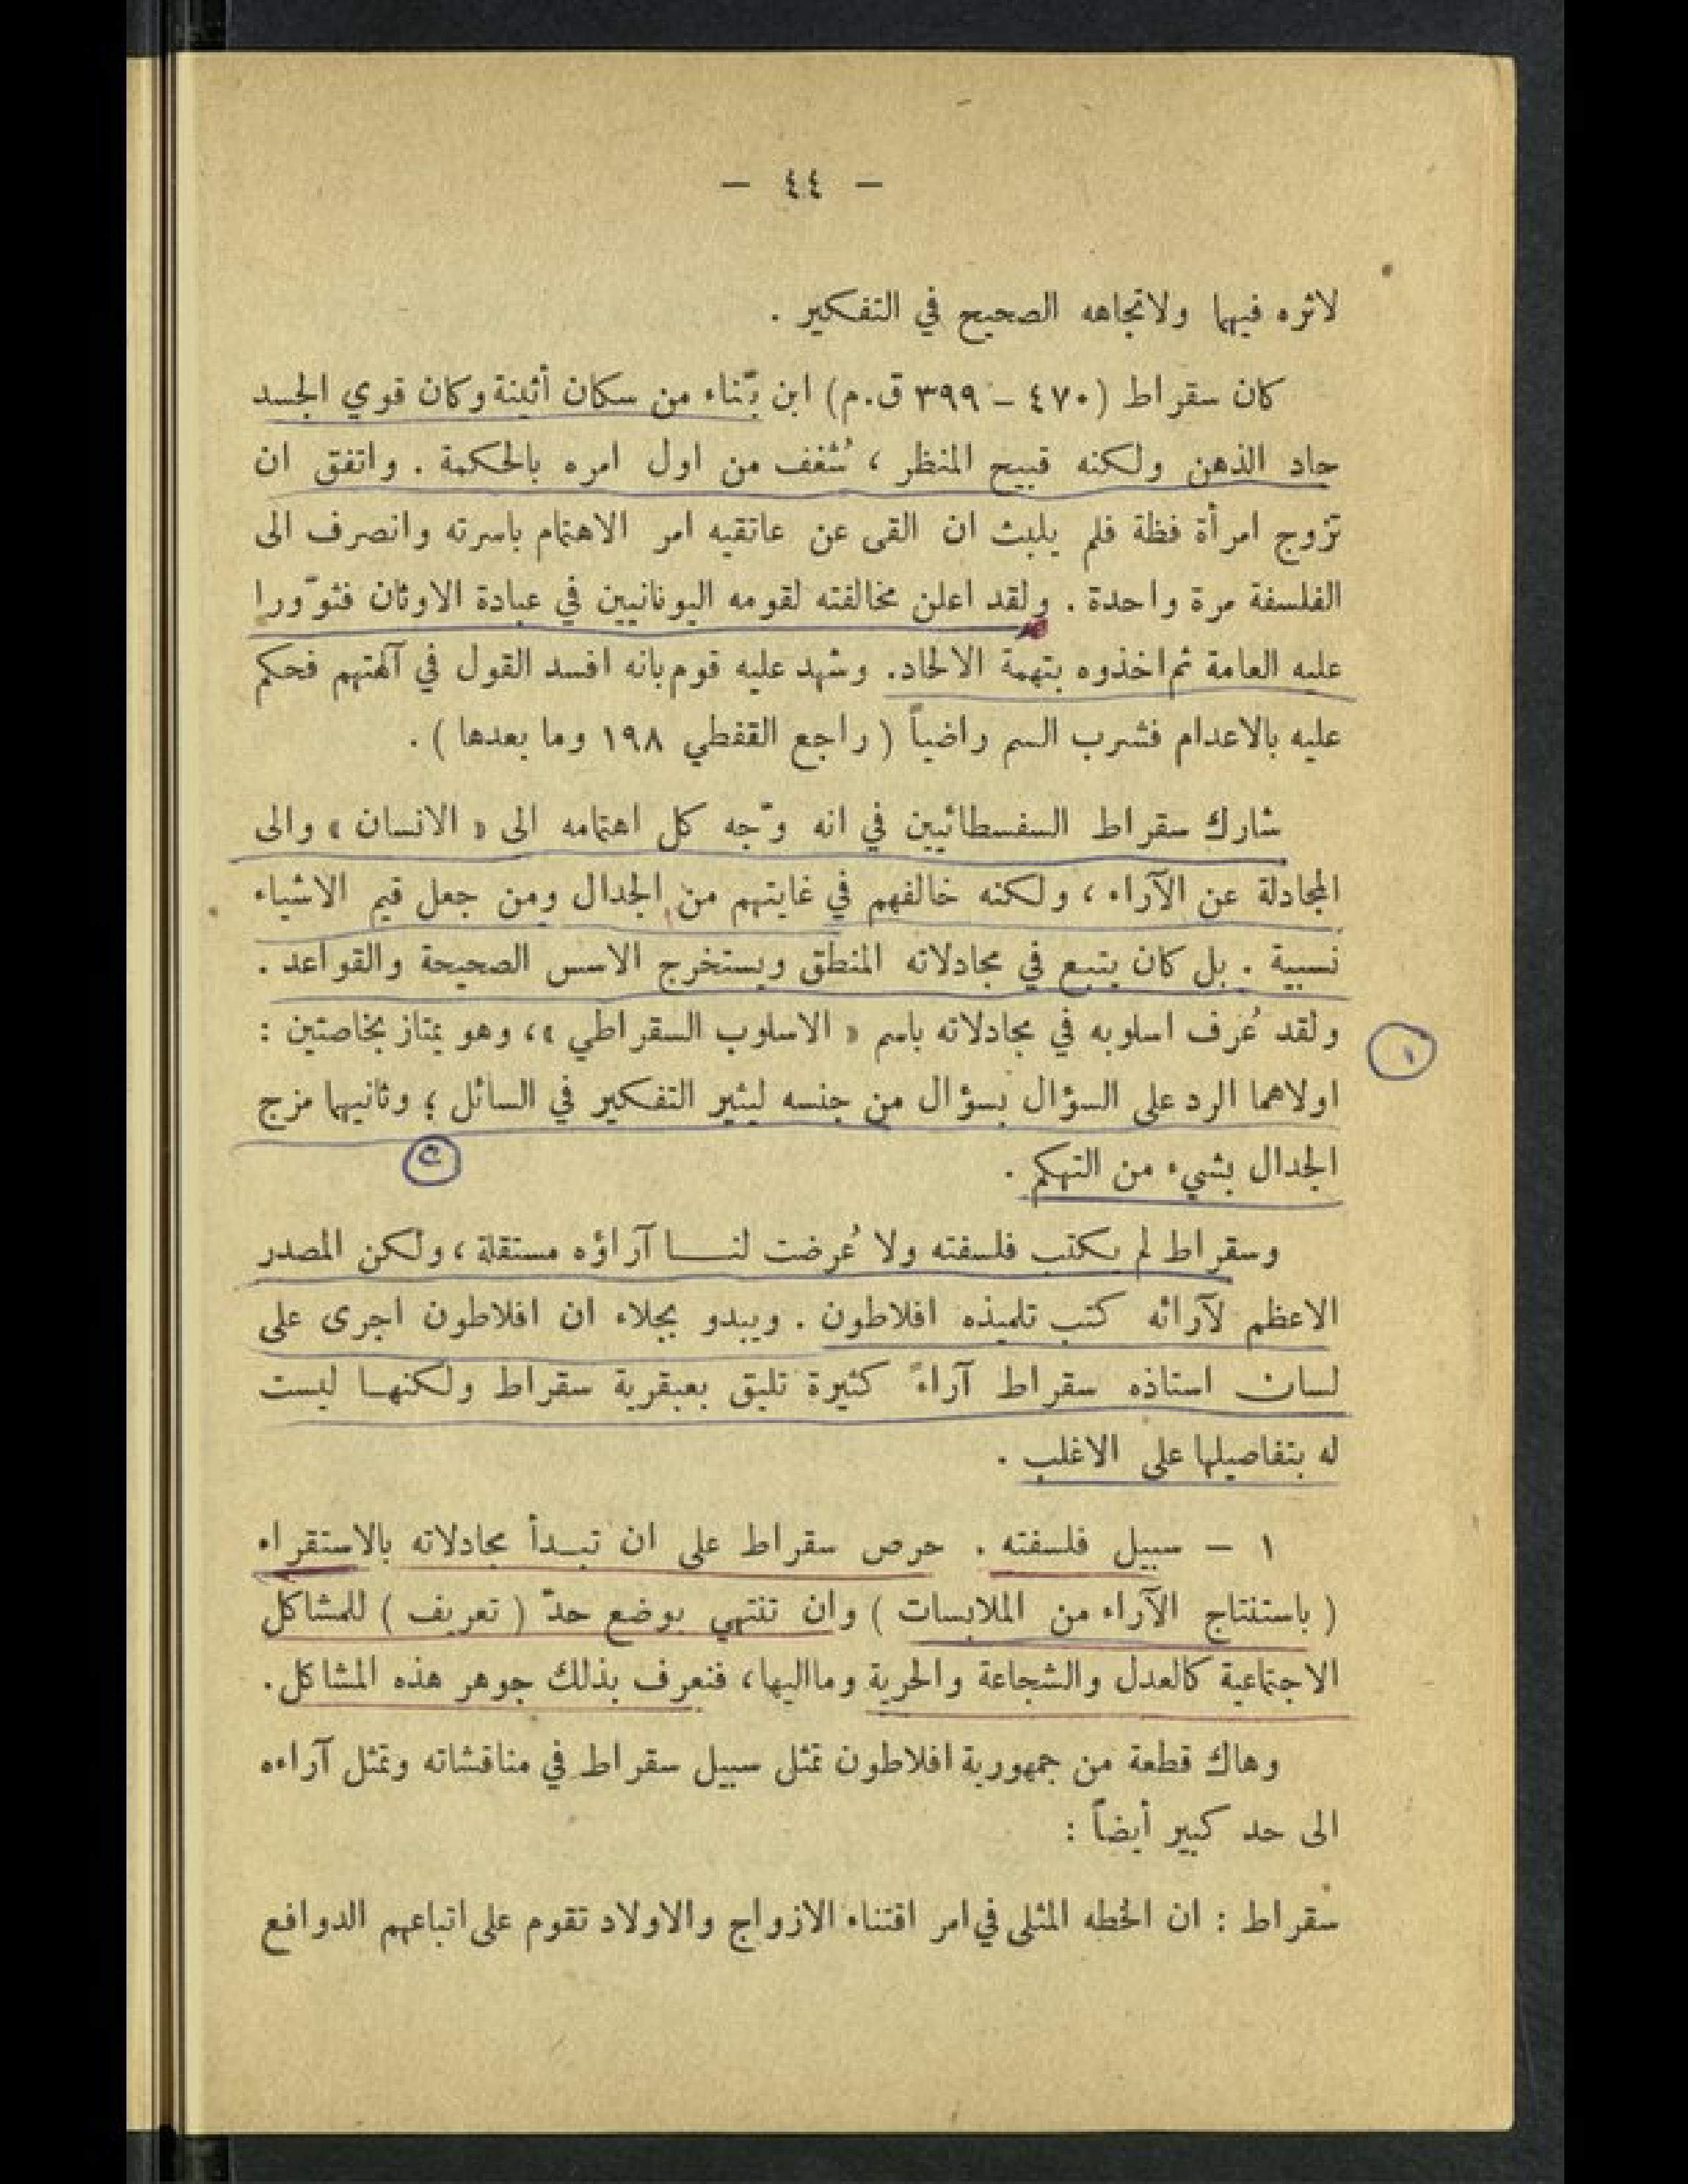 — ٤٤ —
لاثره فيها ولاتجاهه الصحيح في التفكير .
كان سقراط (٤٧٠ – ٣٩٩ ق.م) ابن بّناء من سكان أثينة وكان قوي الجسد
حاد الذهن ولكنه قبيح المنظر ، شُغف من اول امره بالحكمة . واتفق ان
تزوج امرأة فظة فلم يلبث ان القى عن عاتقيه امر الاهتمام باسرته وانصرف الى
الفلسفة مرة واحدة . ولقد اعلن مخالفته لقومه اليونانيين في عبادة الاوثان فثوّروا
عليه العامة ثم اخذوه بتهمة الالحاد. وشهد عليه قوم بانه افسد القول في آلهتهم فحكم
عليه بالاعدام فشرب السم راضياً ( راجع القفطي ١٩٨ وما بعدها ) .
شارك سقراط السفسطائيين في انه وّجه كل اهتمامه الى « الانسان » والى
المجادلة عن الآراء ، ولكنه خالفهم في غايتهم من الجدال ومن جعل قيم الاشياء
نسبية . بل كان يتبع في مجادلاته المنطق ويستخرج الاسس الصحيحة والقواعد .
ولقد عُرف اسلوبه في مجادلاته باسم « الاسلوب السقراطي »، وهو يمتاز بخاصتين :
١
اولاهما الرد على السؤال بسؤال من جنسه ليثير التفكير في السائل ؛ وثانيهما مزج
الجدال بشيء من التهكم .
وسقراط لم يكتب فلسفته ولا عُرضت لنا آراؤه مستقلة ، ولكن المصدر
الاعظم لآرائه كتب تلميذه افلاطون . ويبدو بجلاء ان افلاطون اجرى على
لسان استاذه سقراط آراءً كثيرة تليق بعبقرية سقراط ولكنها ليست
له بتفاصيلها على الاغلب .
١ – سبيل فلسفته . حرص سقراط على ان تبدأ مجادلاته بالاستقراء
( باستنتاج الآراء من الملابسات ) وان تنتهي بوضع حدّ ( تعريف ) للمشاكل
الاجتماعية كالعدل والشجاعة والحرية وما اليها، فنعرف بذلك جوهر هذه المشاكل .
وهاك قطعة من جمهورية افلاطون تمثل سبيل سقراط في مناقشاته وتمثل آراءه
الى حد كبير أيضاً :
سقراط : ان الخطه المثلى في امر اقتناء الازواج والاولاد تقوم على اتباعهم الدوافع